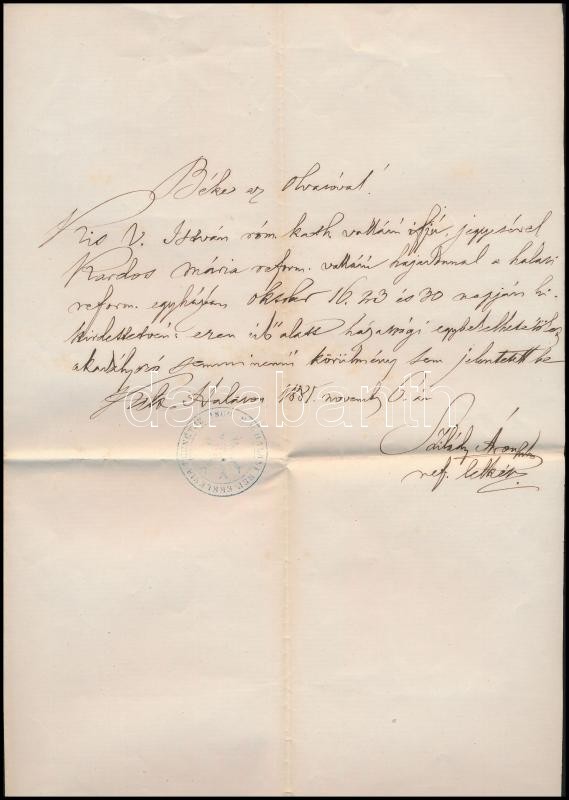 Béke az olvasóval!
Kis V. István róm. kath. vallású ifjú, jegyesével
Kardos Mária reform. vallású hajadonnal a halasi
reform. egyházban október 16. 23 és 30 napján ki
hirdettetvén: ezen idő alatt házassági egybekelhetésöket
akadályozó semminemű körülmény sem jelentetett be
Kun Halason 1881. november 6. án
Szilády Áron
ref. lelkész
darabanth